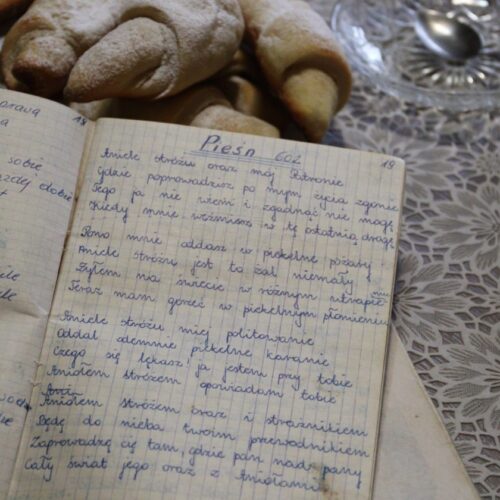 prawą
18
a
sobie
dobie
Pieśń 602
19
Aniele stróżu oraz mój Patronie
Gdzie poprowadzisz po mym życia zgonie
Tego ja nie wiem i zgadnąć nie mogę
Kiedy mnie weźmiesz w tę ostatnią drogę
mnie oddasz w piekelne pożary
Aniele stróżu jest to żal niemały
Żyłem na świecie w różnym utrapie
niu
Teraz mam gorzeć w piekielnym płomieniu
Aniele stróżu miej politowanie
Oddal odemnie piekelne karanie
Czego się lękasz ja jestem przy tobie
Aniołem stróżem opowiadam tobie
Aniołem stróżem oraz i strażnikiem
Będę do nieba twoim przewodnikiem
Zaprowadzę cię tam, gdzie pan nad pany
Cały świat jego oraz z Aniołami